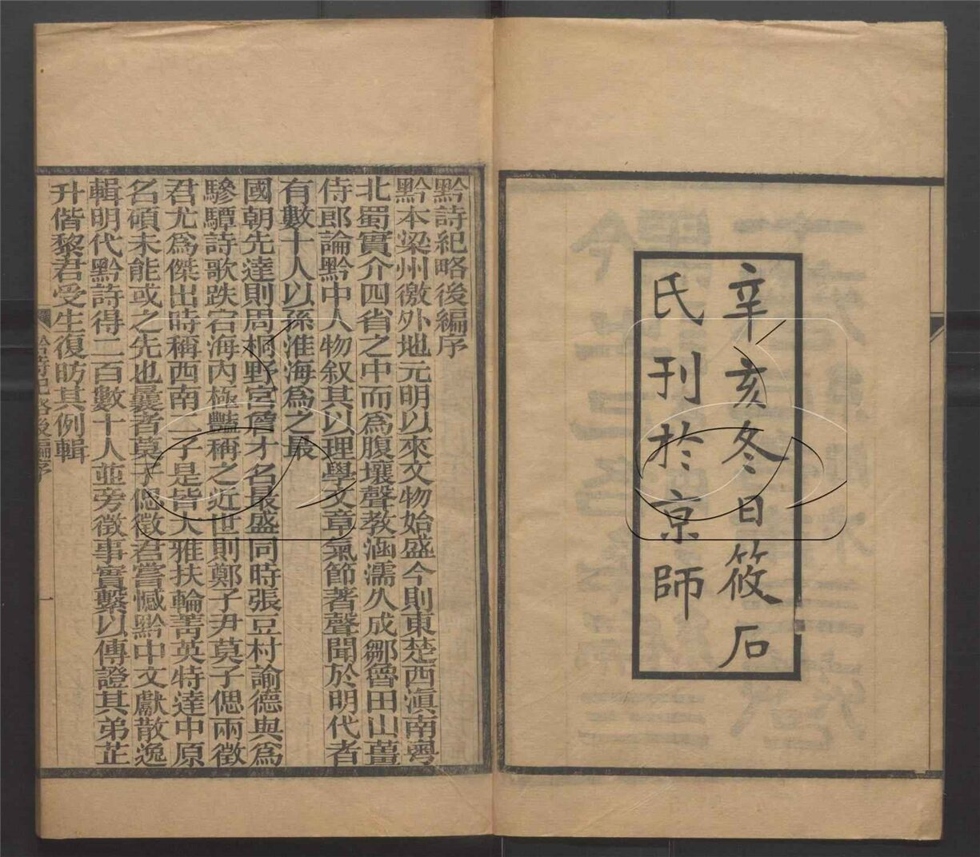 辛亥冬日筱石
氏刊於京師
黔詩紀略後編序
黔本梁州徼外地元明以來文物始盛今則東楚西滇南粵
北蜀實介四省之中而為腹壤聲教涵濡久成鄒魯田山薑
侍郎論黔中人物叙其以理學文章氣節著聲聞於明代者
有數十人以孫淮海為之最
國朝先達則周桐野宮詹才名最盛同時張豆村諭德與為
驂驔詩歌跌宕海內極豔稱之近世則鄭子尹莫子偲兩徵
君尤為傑出時稱西南二子是皆大雅扶輪菁英特達中原
名碩未能或之先也曩者莫子偲徵君嘗憾黔中文獻散逸
輯明代黔詩得二百數十人並旁徵事實繫以傳證其弟芷
升偕黎君受生復昉其例輯
黔詩紀略後編序
一